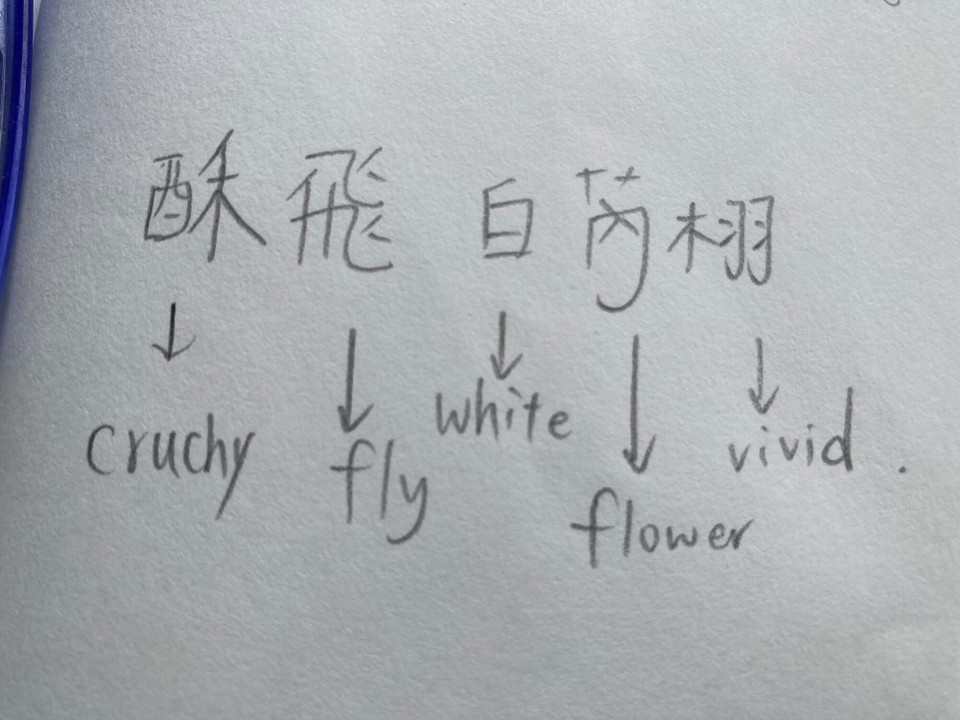 酥飛 白芮栩
cruchy fly white flower vivid.